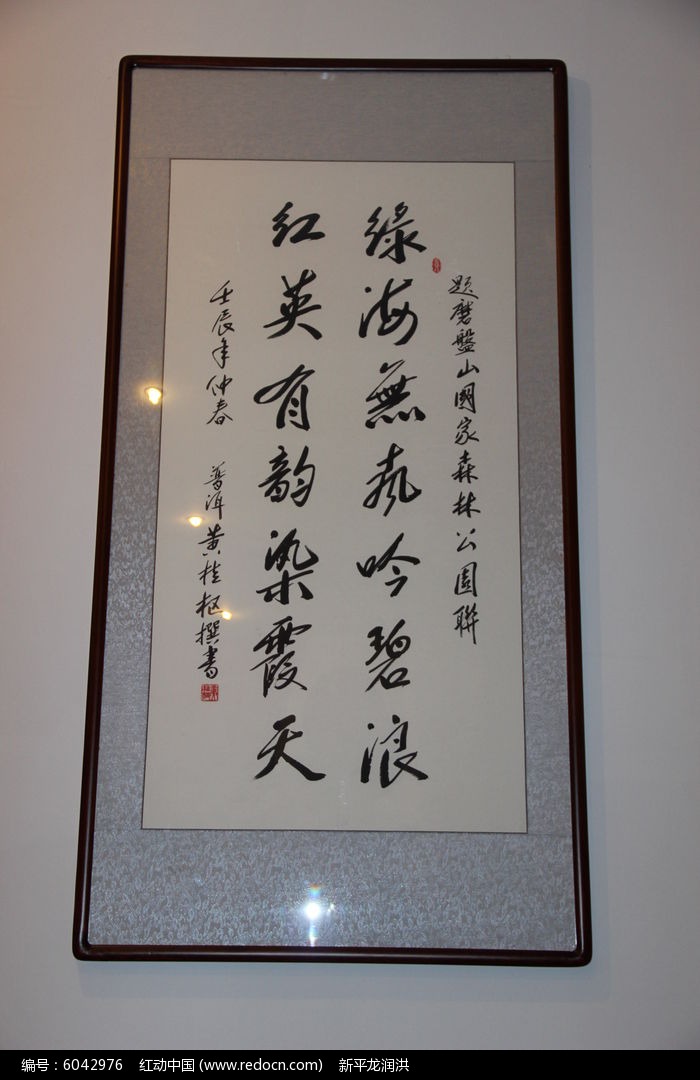 题磨盤山國家森林公園聯
綠海無風吟碧浪
红英有韵染霞天
壬辰年仲春 普洱黄桂枢撰書
编号：6042976 红动中国 (www.redocn.com) 新平龙润洪